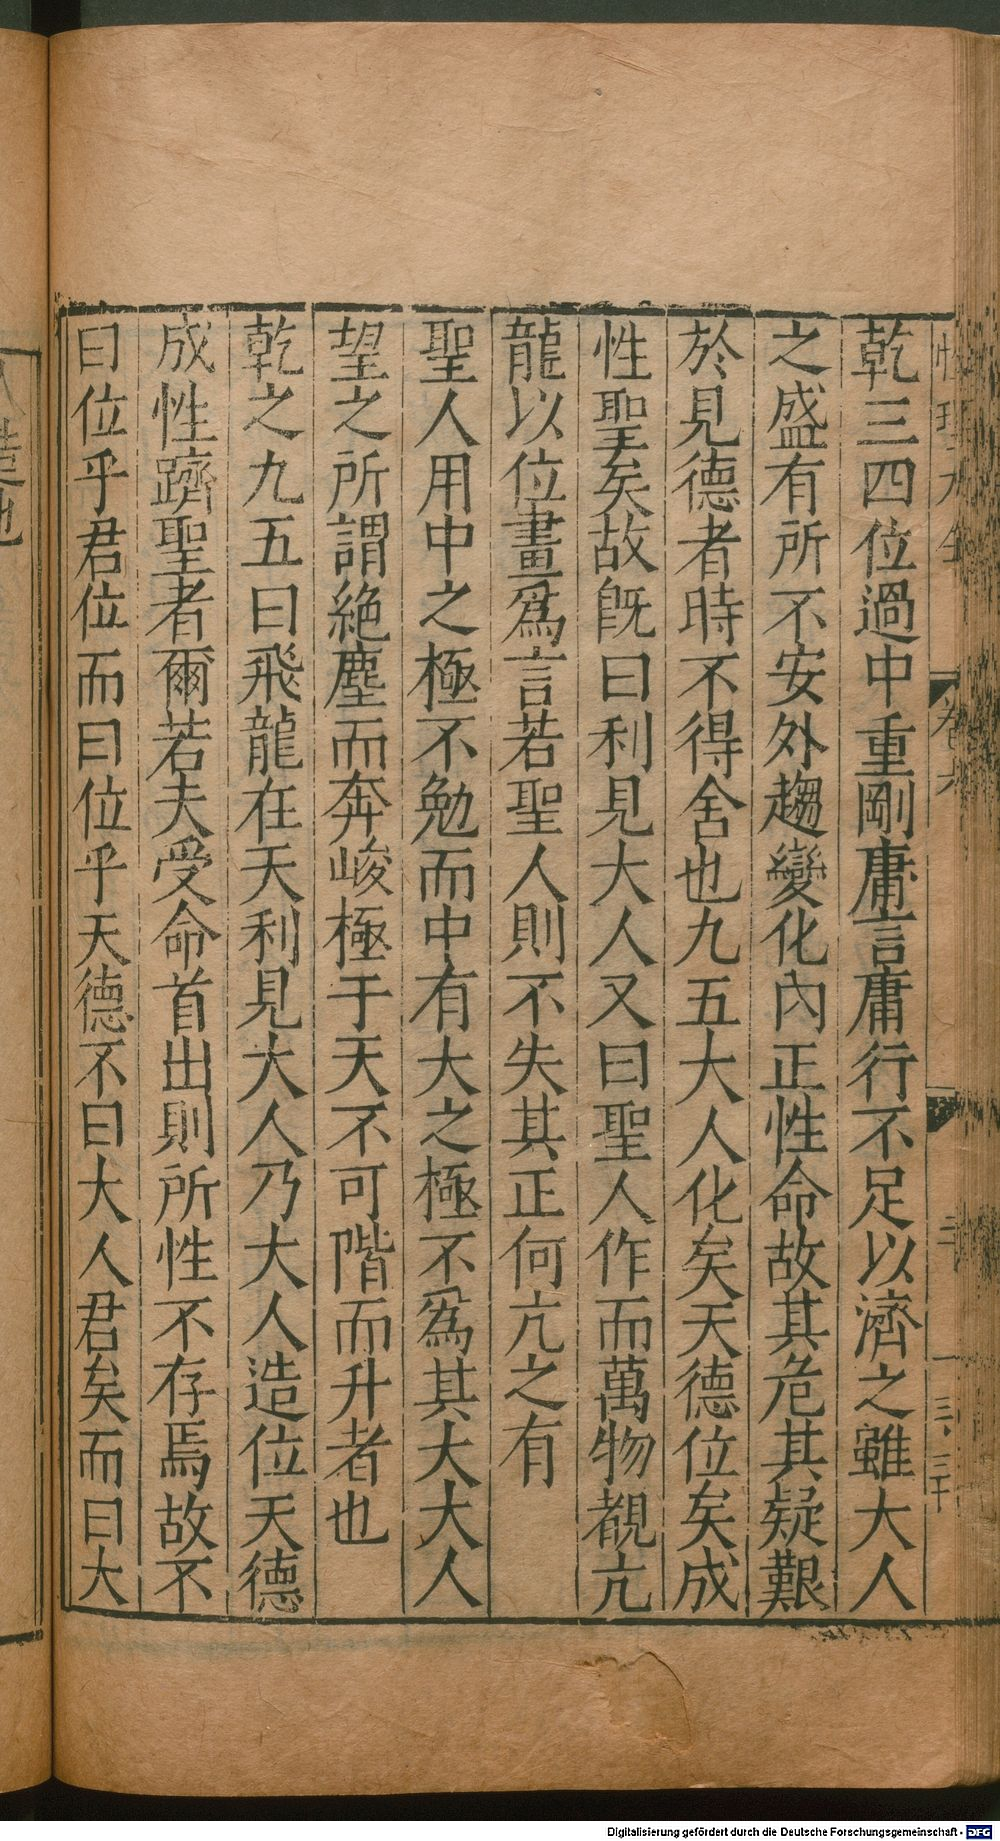 乾三四位過中重剛庸言庸行不足以濟之雖大人
之盛有所不安外趨變化內正性命故其危其疑艱
於見德者時不得舍也九五大人化矣天德位矣成
性聖矣故旣曰利見大人又曰聖人作而萬物覩亢
龍以位畫爲言若聖人則不失其正何亢之有
聖人用中之極不勉而中有大之極不爲其大大人
望之所謂絶塵而奔峻極于天不可階而升者也
乾之九五曰飛龍在天利見大人乃大人造位天德
成性躋聖者爾若夫受命首出則所性不存焉故不
曰位乎君位而曰位乎天德不曰大人君矣而曰大
Digitalisierung gefördert durch die Deutsche Forschungsgemeinschaft - DFG